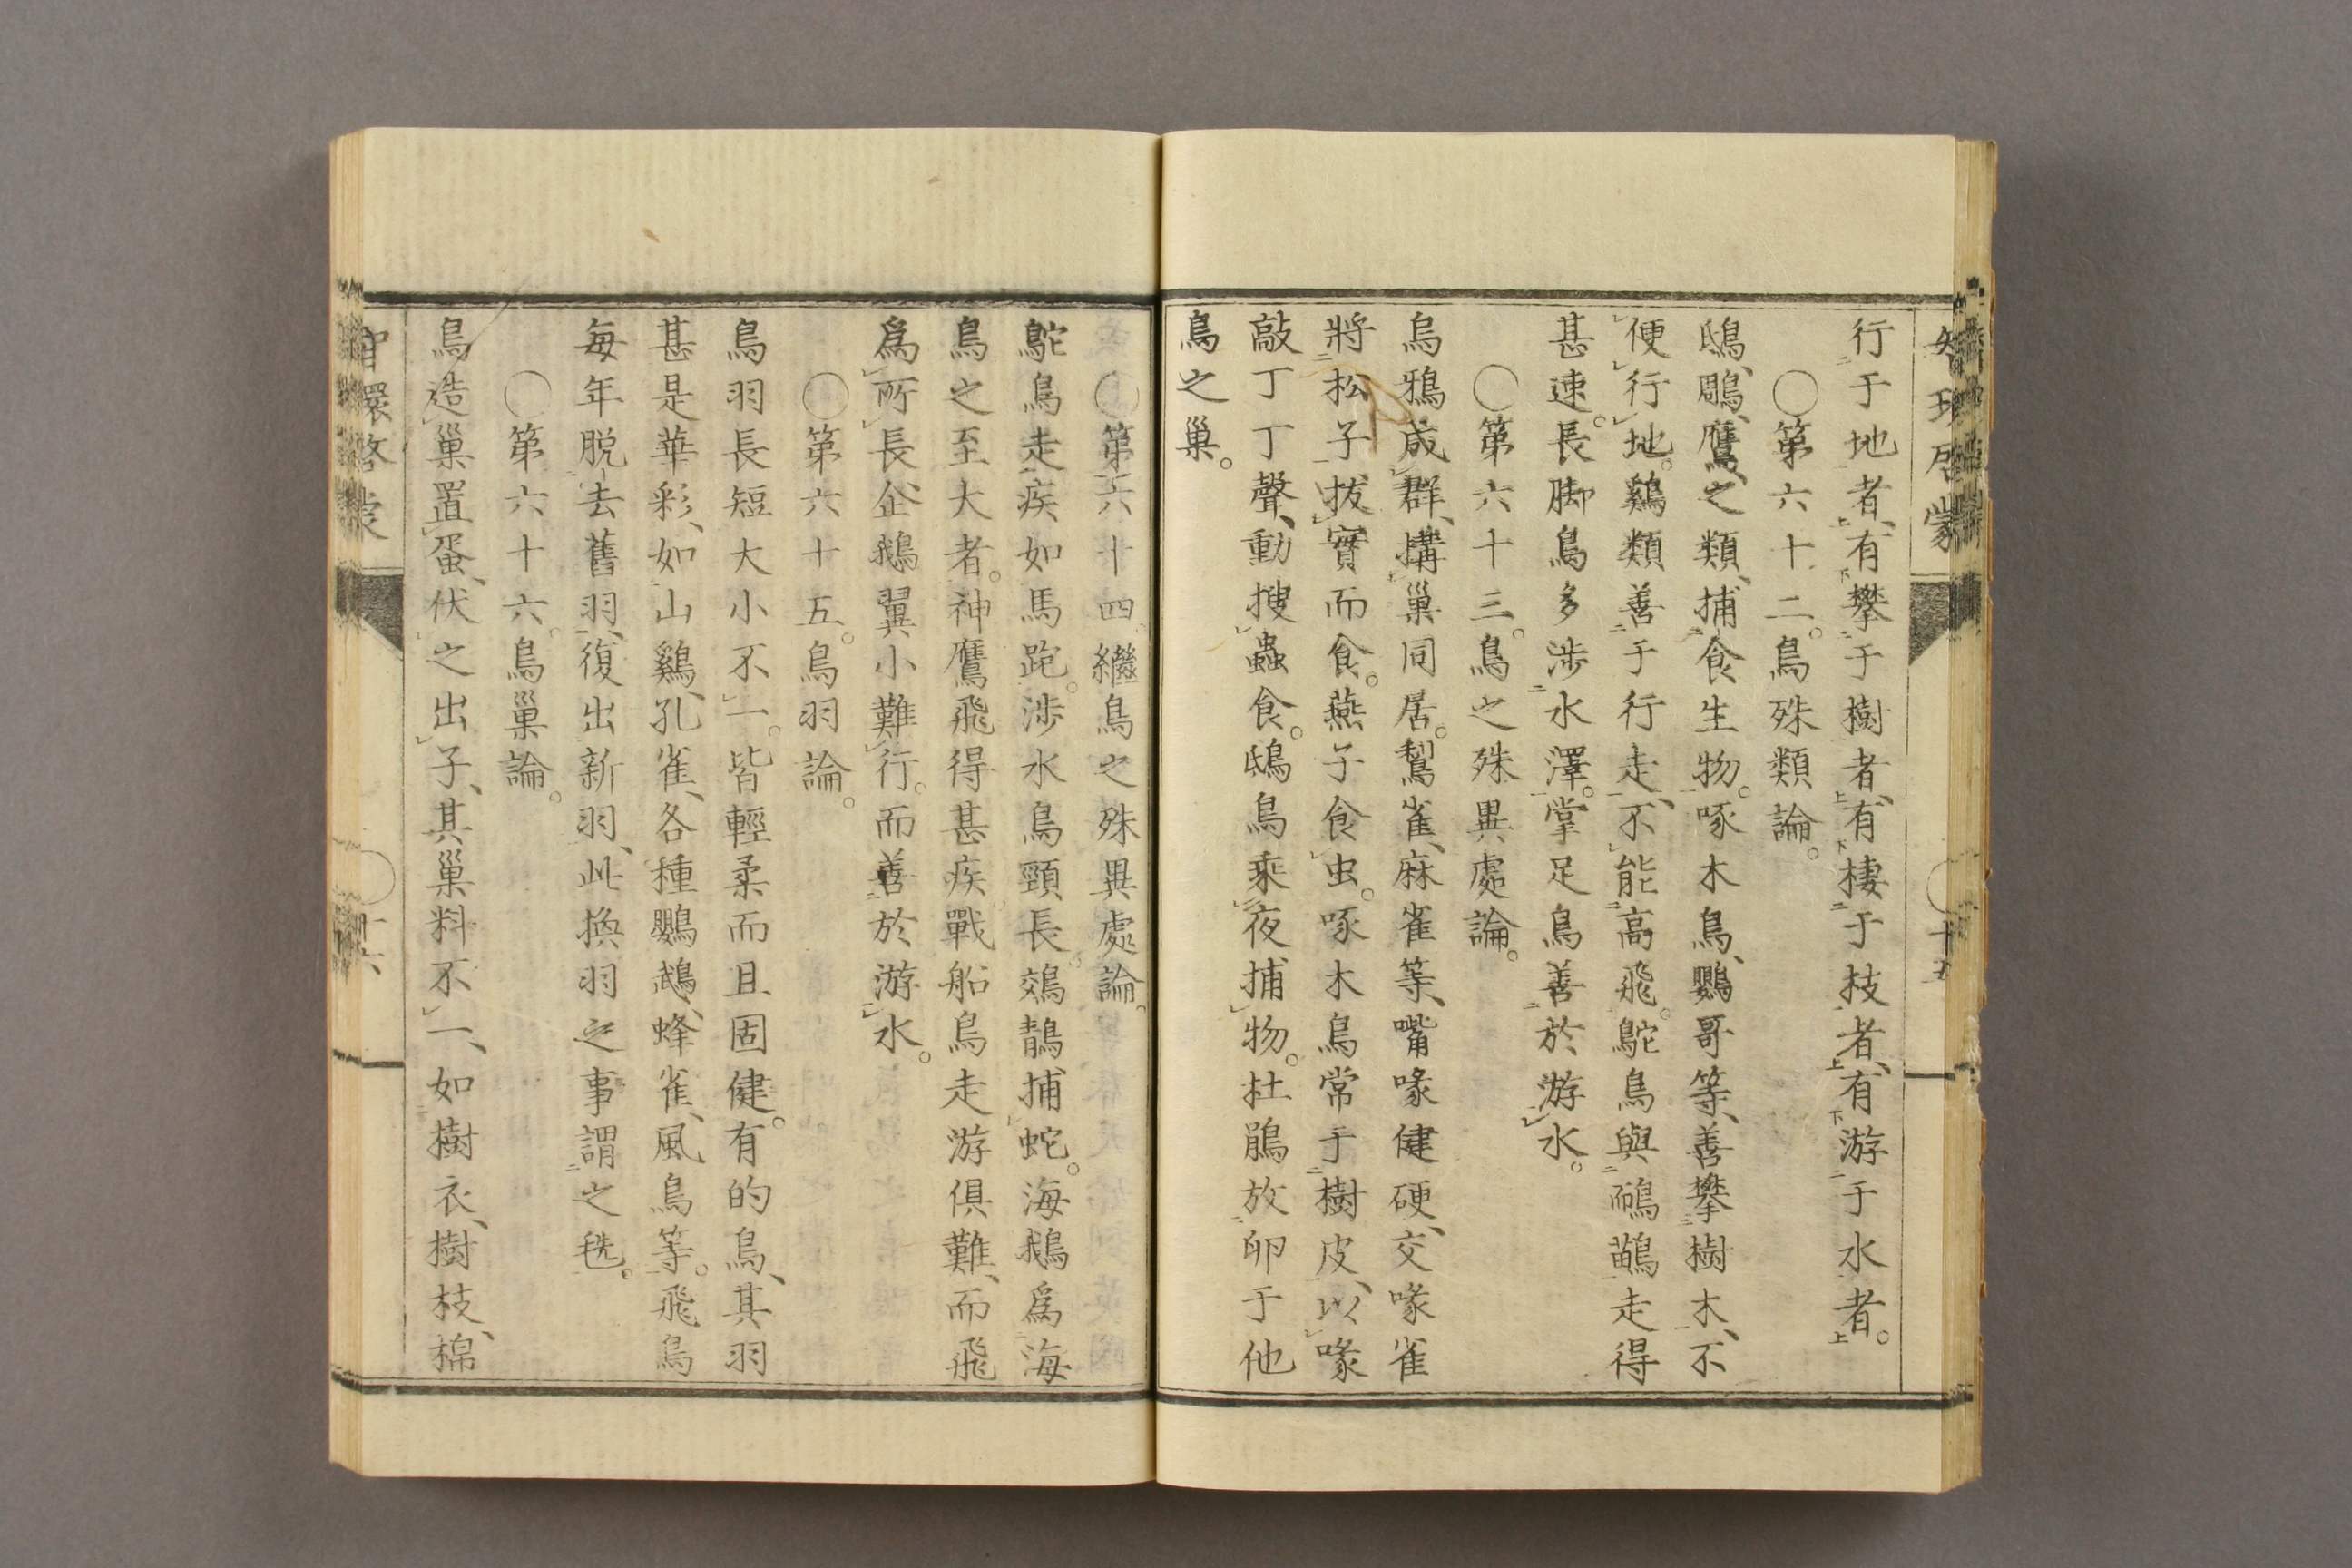 智環啓蒙
十五
行于地者、有攀于樹者、有棲于枝者、有游于水者。
○第六十二。鳥殊類論。
鴟、鵰、鷹、之類、捕食生物。啄木鳥、鸚哥等、善攀樹木、不
便行地。鷄類善于行走、不能高飛。鴕鳥與鴯鶓走得
甚速。長脚鳥多涉水澤。掌足鳥善於游水。
○第六十三。鳥之殊異處論。
烏鴉成群、搆巢同居。鴷雀、麻雀等、嘴喙健硬、交喙雀
將松子拔實而食。燕子食虫。啄木鳥常于樹皮、以喙
敲丁丁聲、動搜蟲食。鴟鳥乘夜捕物。杜鵑放卵于他
鳥之巢。
○第六十四繼鳥之殊異處論。
鴕鳥走疾、如馬跑。涉水鳥頸長。鵁鶄、捕蛇。海鵝爲海
鳥之至大者。神鷹飛得甚疾。戰船鳥走游俱難、而飛
爲所長、企鵝翼小難行。而善於游水。
○第六十五。鳥羽論。
鳥羽長短大小不一。皆輕柔而且固健。有的鳥、其羽
甚是華彩、如山鷄、孔雀、各種鸚鵡、蜂雀、風鳥等。飛鳥
每年脱去舊羽、復出新羽、此換羽之事謂之毨。
○第六十六。鳥巢論。
鳥造巢置蛋、伏之出子、其巢料不一、如樹衣、樹枝、棉
智環啓蒙
十六